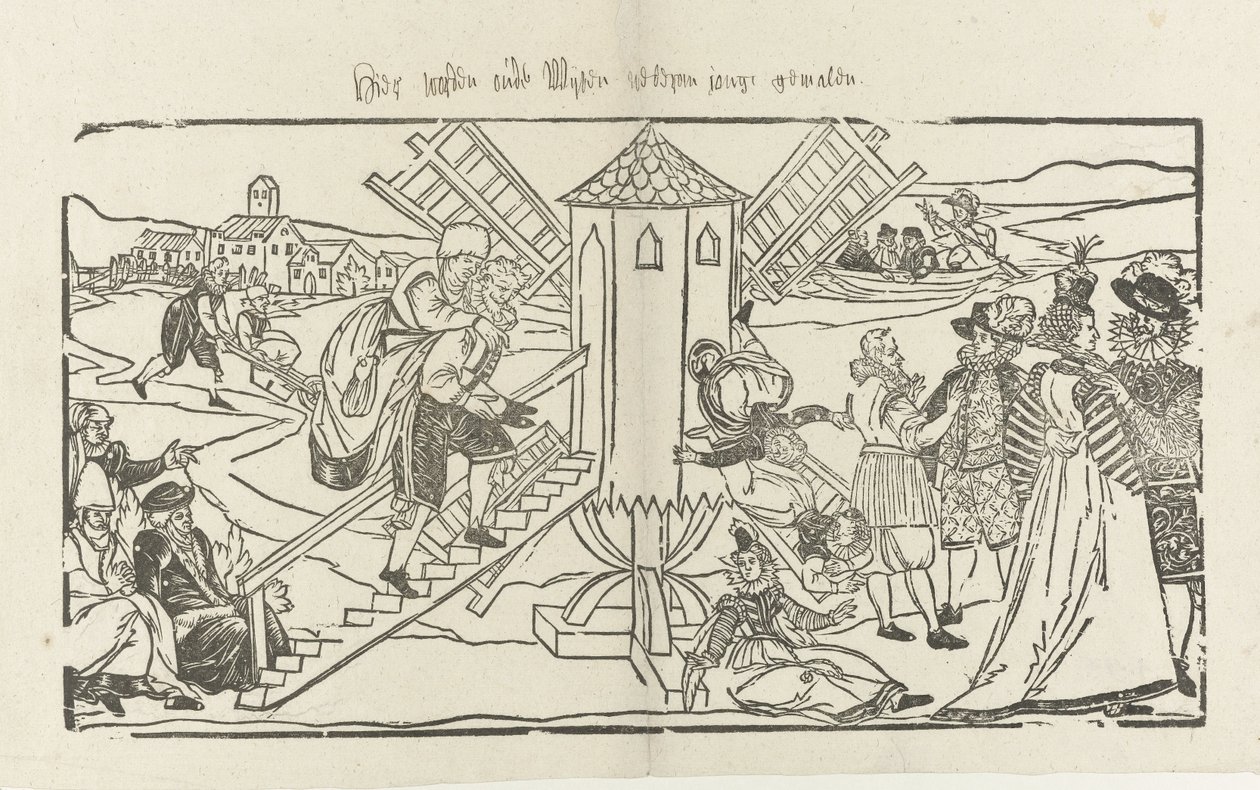 Hier worden oude Wyven wederom jonge gemalen.